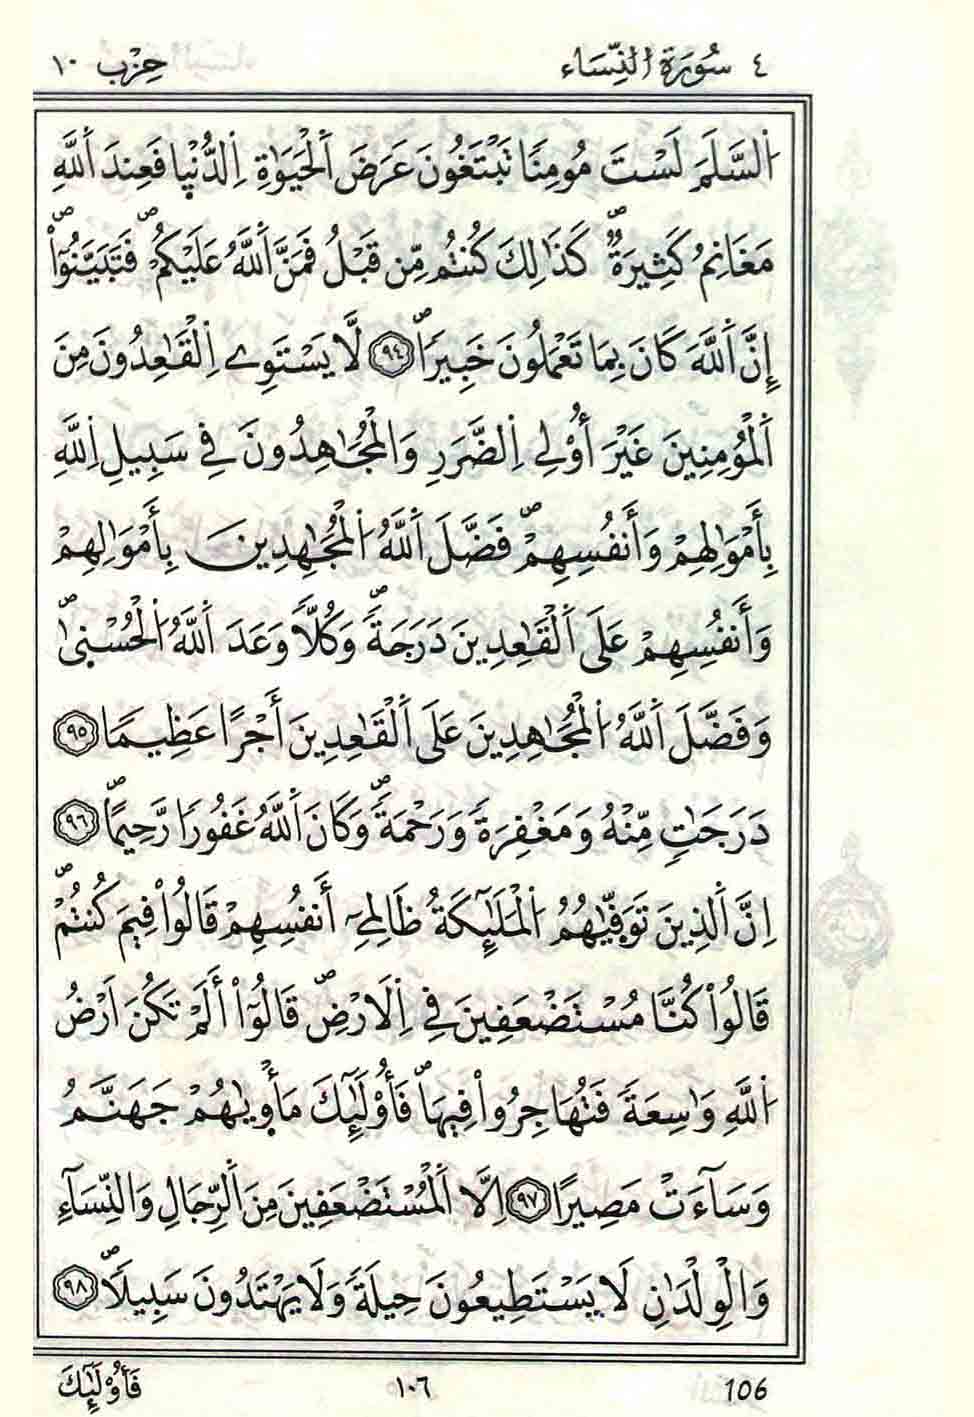 ٤ سُورَةُ اَ۬لنِّسَاءِ حِزْب ١٠
اَ۬لسَّلَٰمَ لَسْتَ مُومِناٗ تَبْتَغُونَ عَرَضَ اَ۬لْحَيَوٰةِ اِ۬لدُّنْي۪ا فَعِندَ اَ۬للَّهِ
مَغَانِمُ كَثِيرَةٞۖ كَذَٰلِكَ كُنتُم مِّن قَبْلُ فَمَنَّ اَ۬للَّهُ عَلَيْكُمْۖ فَتَبَيَّنُوٓاْۖ
إِنَّ اَ۬للَّهَ كَانَ بِمَا تَعْمَلُونَ خَبِيراٗۖ ٩٤ لَّا يَسْتَوِے اِ۬لْقَٰعِدُونَ مِنَ
اَ۬لْمُؤْمِنِينَ غَيْرَ أُوْلِي اِ۬لضَّرَرِ وَالْمُجَٰهِدُونَ فِي سَبِيلِ اِ۬للَّهِ
بِأَمْوَٰلِهِمْ وَأَنفُسِهِمْۖ فَضَّلَ اَ۬للَّهُ اُ۬لْمُجَٰهِدِينَ بِأَمْوَٰلِهِمْ
وَأَنفُسِهِمْ عَلَى اَ۬لْقَٰعِدِينَ دَرَجَةٗۖ وَكُلّاٗ وَعَدَ اَ۬للَّهُ اُ۬لْحُسْن۪يٰۖ
وَفَضَّلَ اَ۬للَّهُ اُ۬لْمُجَٰهِدِينَ عَلَى اَ۬لْقَٰعِدِينَ أَجْراً عَظِيماٗ ٩٥
دَرَجَٰتٖ مِّنْهُ وَمَغْفِرَةٗ وَرَحْمَةٗۖ وَكَانَ اَ۬للَّهُ غَفُوراٗ رَّحِيماًۖ ٩٦
اِنَّ اَ۬لذِينَ تَوَفّ۪يٰهُمُ اُ۬لْمَلَٰٓئِكَةُ ظَالِمِےٓ أَنفُسِهِمْ قَالُواْ فِيمَ كُنتُمْۖ
قَالُواْ كُنَّا مُسْتَضْعَفِينَ فِي اِ۬لَارْضِۖ قَالُوٓاْ أَلَمْ تَكُنَ اَرْضُ
اُ۬للَّهِ وَٰسِعَةٗ فَتُهَاجِرُواْ فِيهَاۖ فَأُوْلَٰٓئِكَ مَأْو۪يٰهُمْ جَهَنَّمُ
وَسَآءَتْ مَصِيراً ٩٧ اِلَّا اَ۬لْمُسْتَضْعَفِينَ مِنَ اَ۬لرِّجَالِ وَالنِّسَآءِ
وَالْوِلْدَٰنِ لَا يَسْتَطِيعُونَ حِيلَةٗ وَلَا يَهْتَدُونَ سَبِيلاٗۖ ٩٨
106 ١٠٦ فَأُوْلَٰٓئِكَ